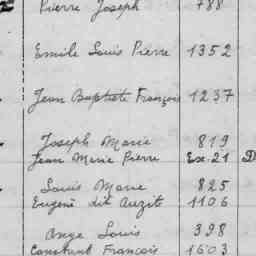 Pierre Joseph 788
Emile Louis Pierre 1352
Jean Baptiste François 1237
Joseph Marie 819
Jean Marie Pierre Ex-21 D
Louis Marie 825
Eugène dit Auzit 1106
Ange Louis 398
Constant François 1603